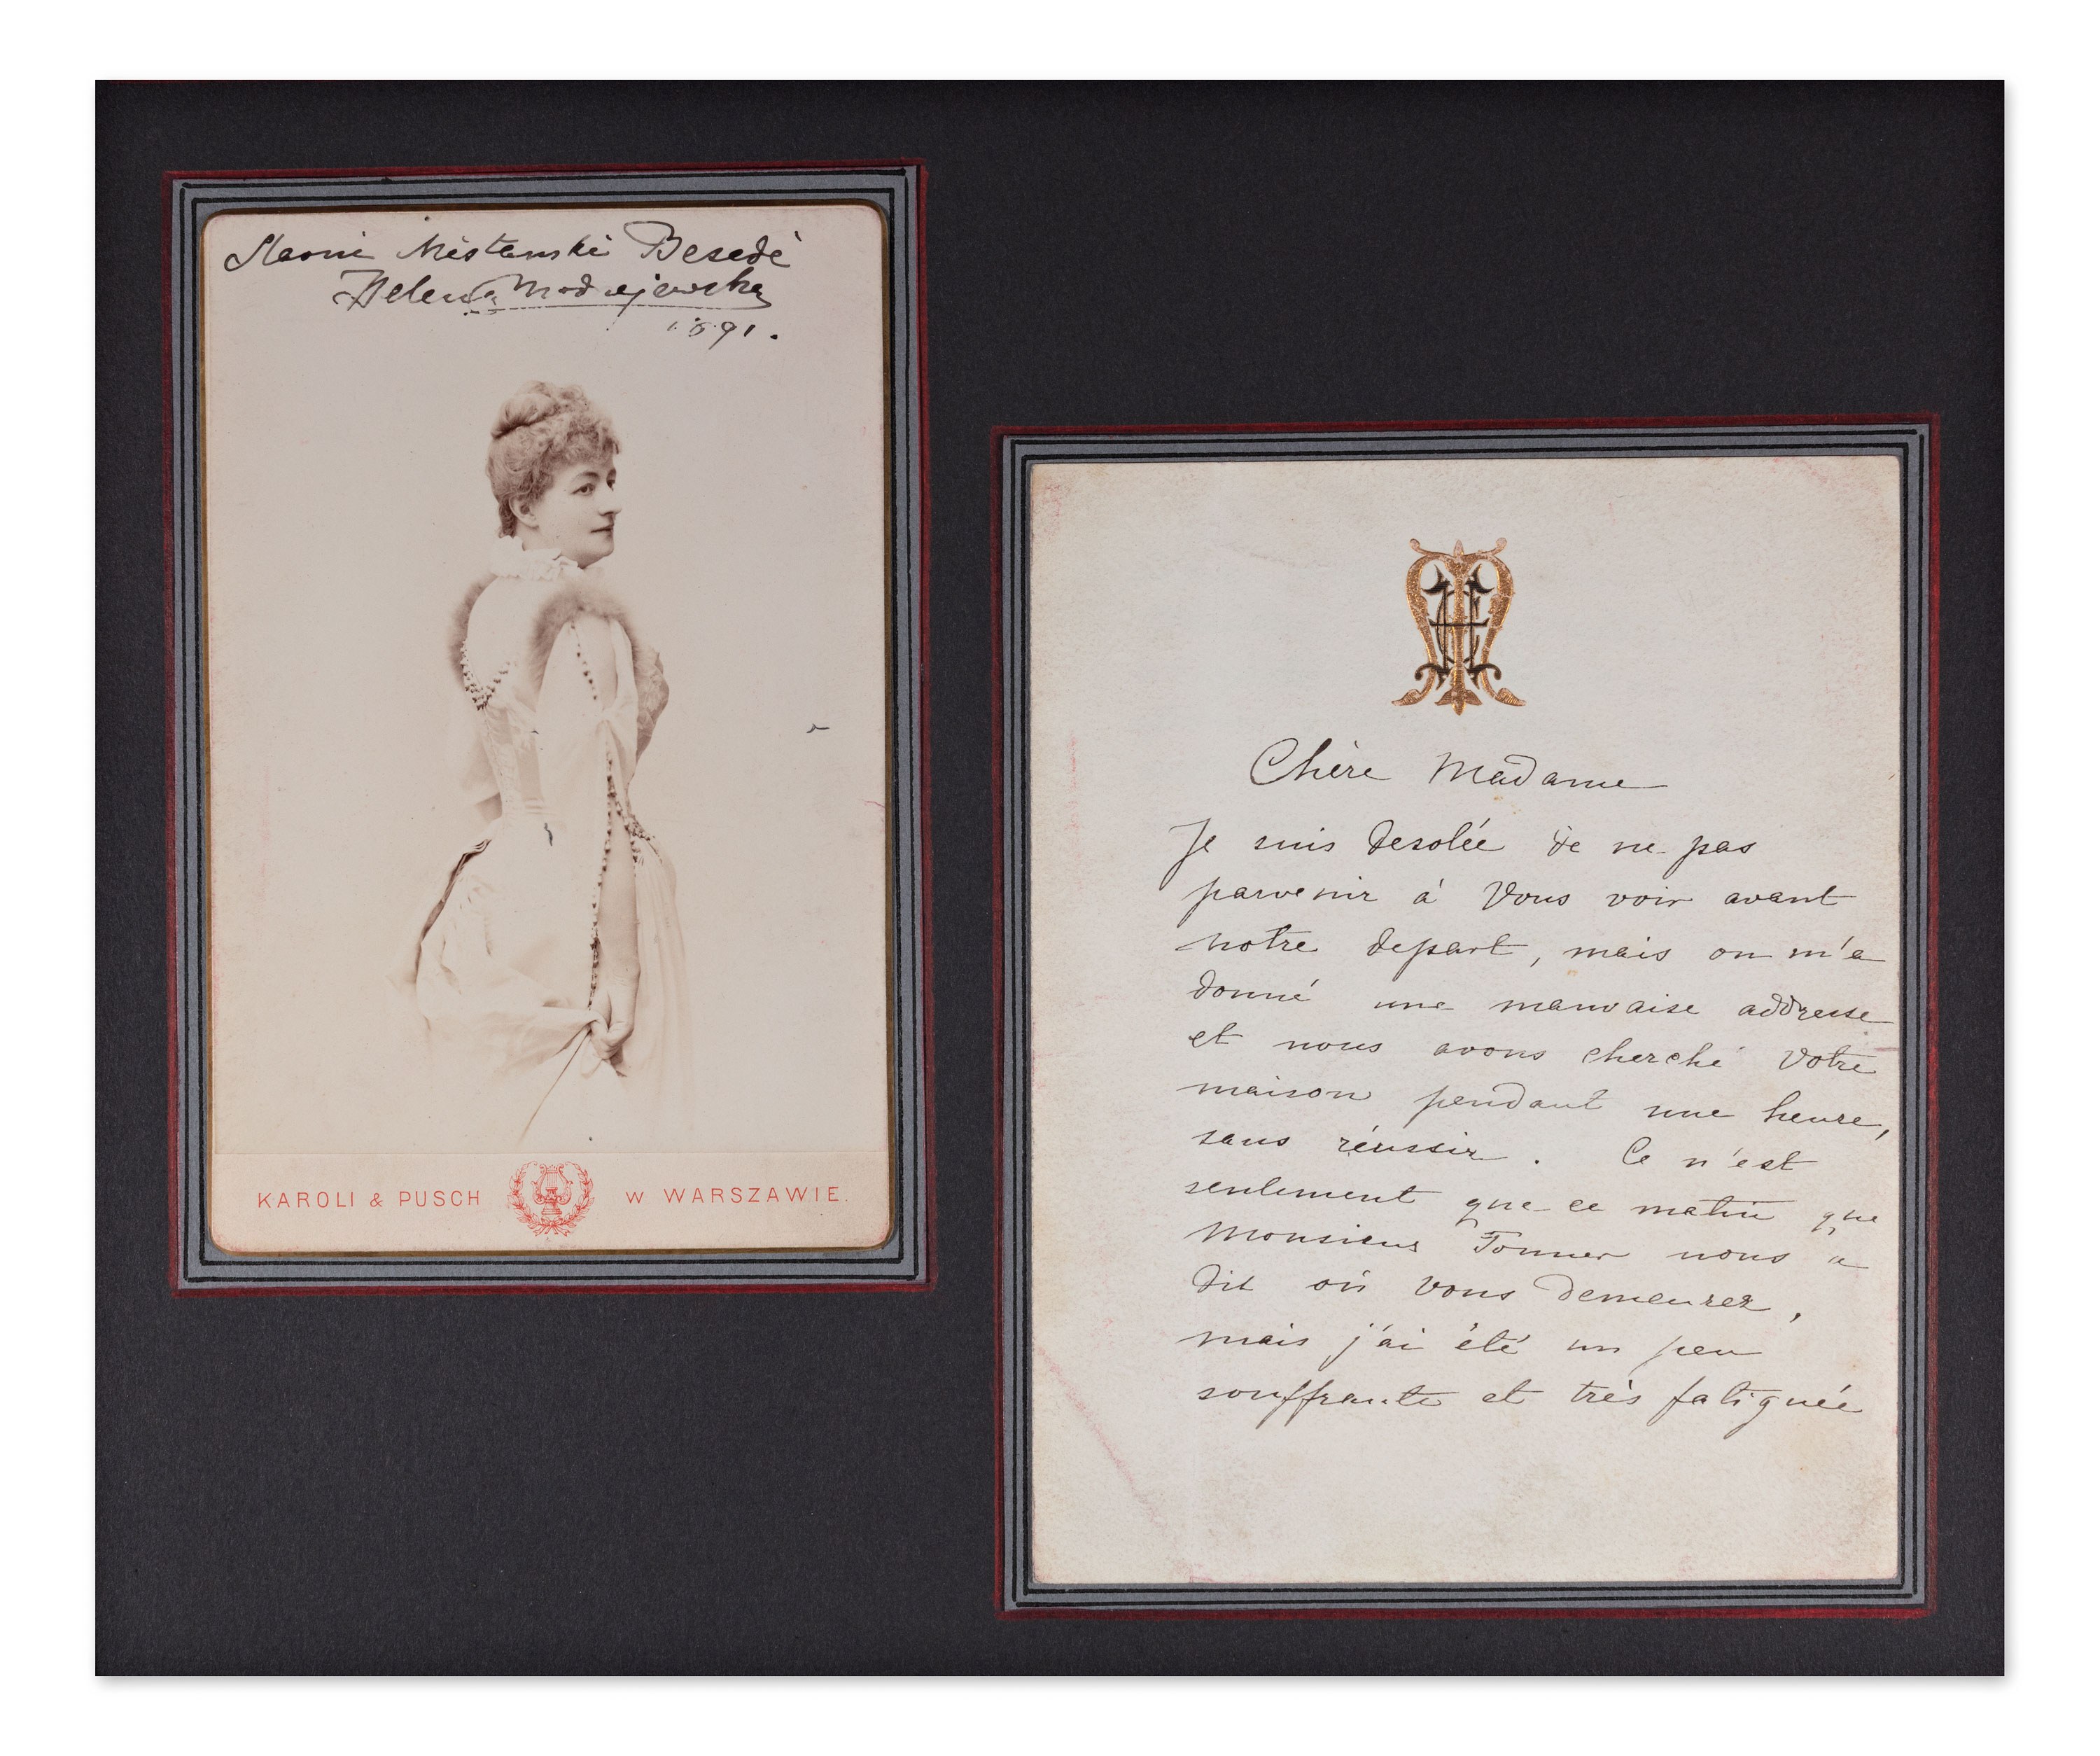 Slavni Mèstanski Besedè
Helena Modrzejewska
1891.
KAROLI & PUSCH W WARSZAWIE.
HM
Chère Madame
Je suis desolée de ne pas
parvenir à Vous voir avant
notre depart, mais on m'a
donné une mauvaise addresse
et nous avons cherché Votre
maison pendant une heure,
sans réussir. Ce n'est
seulement que ce matin que
Monsieur Tonner nous a
dit où vous demeurez,
mais j'ai été un peu
souffrante et très fatiguée